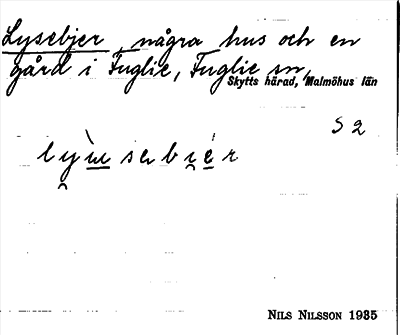 Lysebjer, några hus och en
gård i Fuglie, Fuglie sn,
Skytts härad, Malmöhus län
S 2
NILS NILSSON 1935